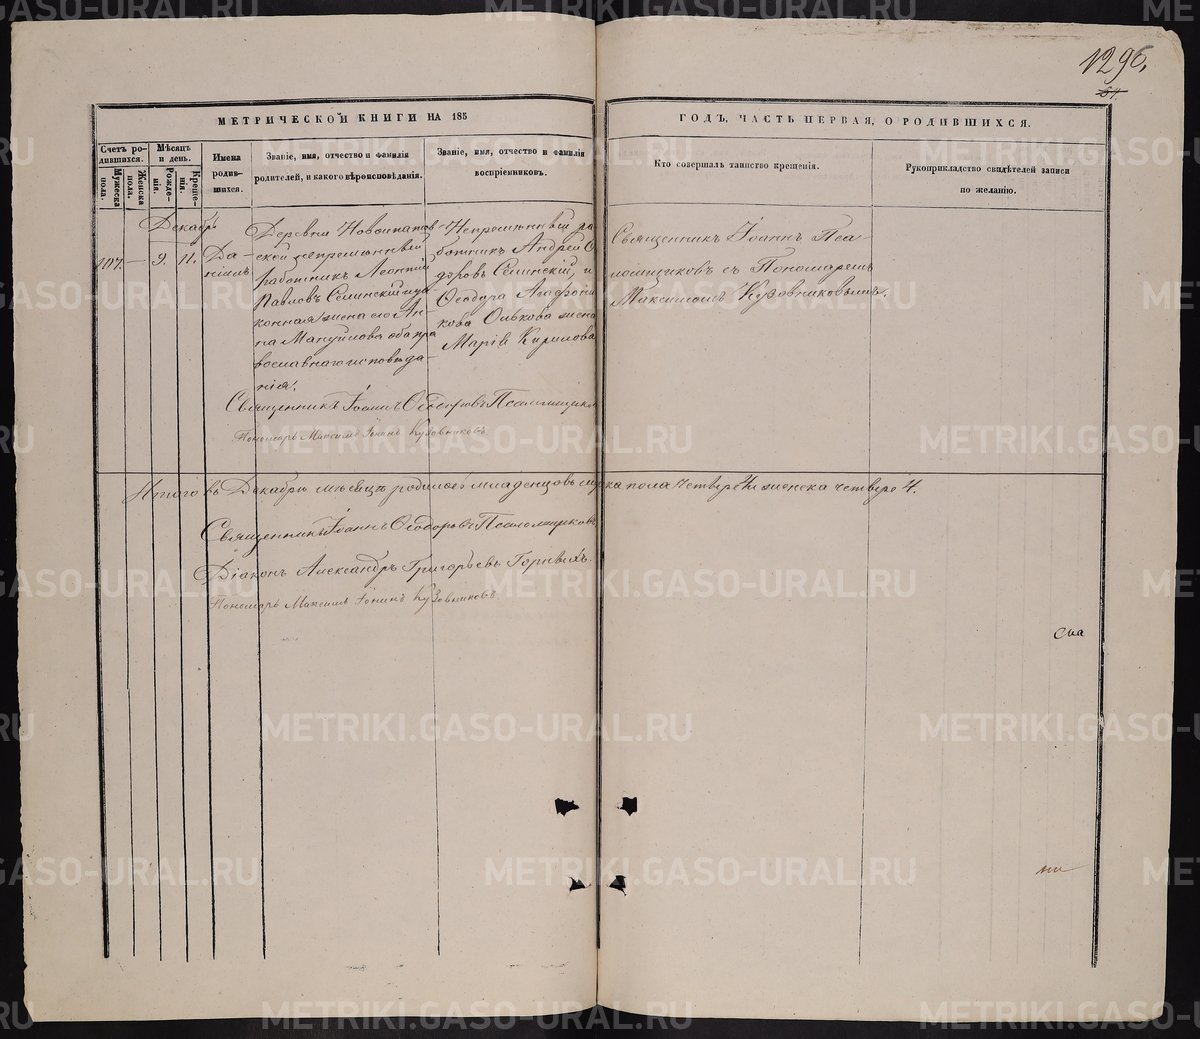 1296.
МЕТРИЧЕСКОЙ КНИГИ НА 185
ГОДЪ, ЧАСТЬ ПЕРВАЯ, О РОДИВШИХСЯ.
Счетъ ро-
дившихся.
Мужеска
пола.
Женска
пола.
Мѣсяцъ
и день.
Рожде-
нія.
Креще-
нія.
Имена
родив-
шихся.
Званіе, имя, отчество и фамилія
родителей, и какого вѣроисповѣданія.
Званіе, имя, отчество и фамилія
воспріемниковъ.
Кто совершалъ таинство крещенія.
Рукоприкладство свидѣтелей записи
по желанію.
Декабрь
107. — 9. 11.
Да-
ніилъ.
Деревни Новоипатов-
ской непремѣнный
работникъ Леонтій
Павловъ Семинскій и за-
конная жена его Ан-
на Мануйлова оба пра
вославнаго исповѣда-
нія.
Непремѣнный ра
ботникъ Андрей Ѳ
доровъ Семинскій, и
Ѳеодора Агафони
кова жена
Марія Кирилова
Священникъ Іоаннъ Пса-
ломщиковъ съ Пономаремъ
Максимомъ Кузовниковымъ.
Священникъ Іоаннъ Ѳеодоровъ Псаломщиковъ
Пономарь Максимъ Іонинъ Кузовниковъ
Итого въ Декабрѣ мѣсяцѣ родилось младенцовъ мужска пола четверо 4 женска четверо 4.
Священникъ Іоаннъ Ѳеодоровъ Псаломщиковъ
Діаконъ Александръ Григорьевъ Горныхъ.
Пономарь Максимъ Іонинъ Кузовниковъ
METRIKI.GASO-URAL.RU